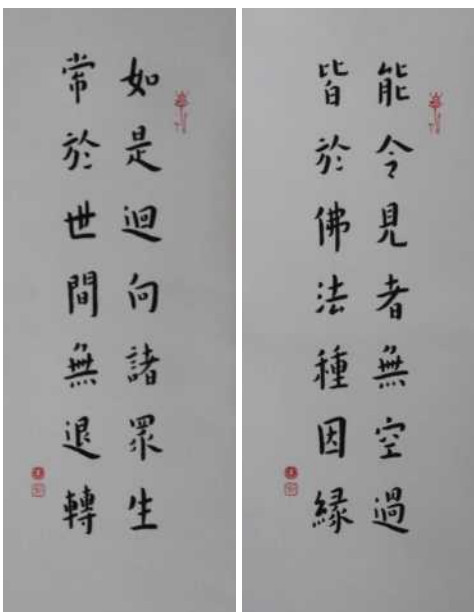 能令見者無空過
皆於佛法種因緣
如是迴向諸眾生
常於世間無退轉